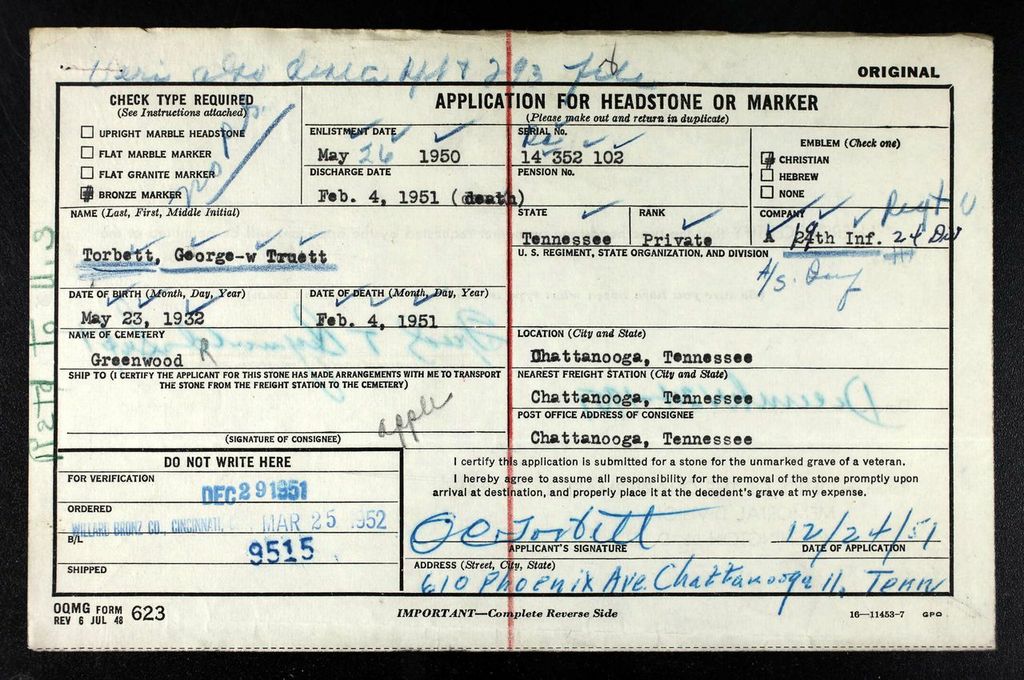 ORIGINAL
CHECK TYPE REQUIRED
(See Instructions attached)
UPRIGHT MARBLE HEADSTONE
FLAT MARBLE MARKER
FLAT GRANITE MARKER
BRONZE MARKER
APPLICATION FOR HEADSTONE OR MARKER
(Please make out and return in duplicate)
ENLISTMENT DATE
May 26 1950
DISCHARGE DATE
Feb. 4, 1951 (death)
SERIAL No.
Ra
14 352 102
PENSION No.
EMBLEM (Check one)
CHRISTIAN
HEBREW
NONE
NAME (Last, First, Middle Initial)
Torbett, George-w Truett
STATE
Tennessee
RANK
Private
COMPANY
A 19th Inf. 24 Div
U. S. REGIMENT, STATE ORGANIZATION, AND DIVISION
DATE OF BIRTH (Month, Day, Year)
May 23, 1932
DATE OF DEATH (Month, Day, Year)
Feb. 4, 1951
NAME OF CEMETERY
Greenwood R
LOCATION (City and State)
Chattanooga, Tennessee
SHIP TO (I CERTIFY THE APPLICANT FOR THIS STONE HAS MADE ARRANGEMENTS WITH ME TO TRANSPORT
THE STONE FROM THE FREIGHT STATION TO THE CEMETERY)
NEAREST FREIGHT STATION (City and State)
Chattanooga, Tennessee
apple
(SIGNATURE OF CONSIGNEE)
POST OFFICE ADDRESS OF CONSIGNEE
Chattanooga, Tennessee
DO NOT WRITE HERE
FOR VERIFICATION
DEC 29 1951
ORDERED
WILLARD BRONZ CO., CINCINNATI, MAR 25 1952
B/L
9515
SHIPPED
I certify this application is submitted for a stone for the unmarked grave of a veteran.
I hereby agree to assume all responsibility for the removal of the stone promptly upon
arrival at destination, and properly place it at the decedent's grave at my expense.
Torbett 12/24/51
APPLICANT'S SIGNATURE DATE OF APPLICATION
ADDRESS (Street, City, State)
610 Phoenix Ave. Chattanooga 11, Tenn
OQMG FORM 623
REV 6 JUL 48
IMPORTANT—Complete Reverse Side
16—11453-7 GPO